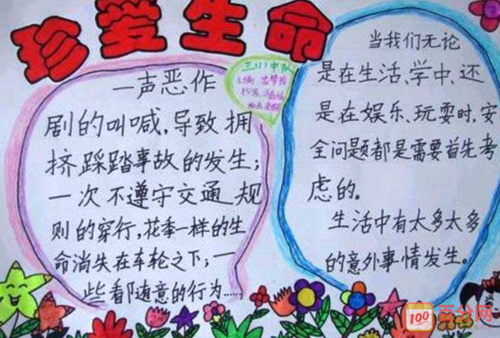 珍爱生命
一声恶作
剧的叫喊,导致拥
挤踩踏事故的发生;
一次不遵守交通规
则的穿行,花季一样的生
命消失在车轮之下;一
些看都随意的行为……
三(1)中队
主编
当我们无论
是在生活,学中,还
是在娱乐、玩耍时,安
全问题都是需要首先考
虑的。
生活中有太多太多
的意外事情发生。
100 百分网